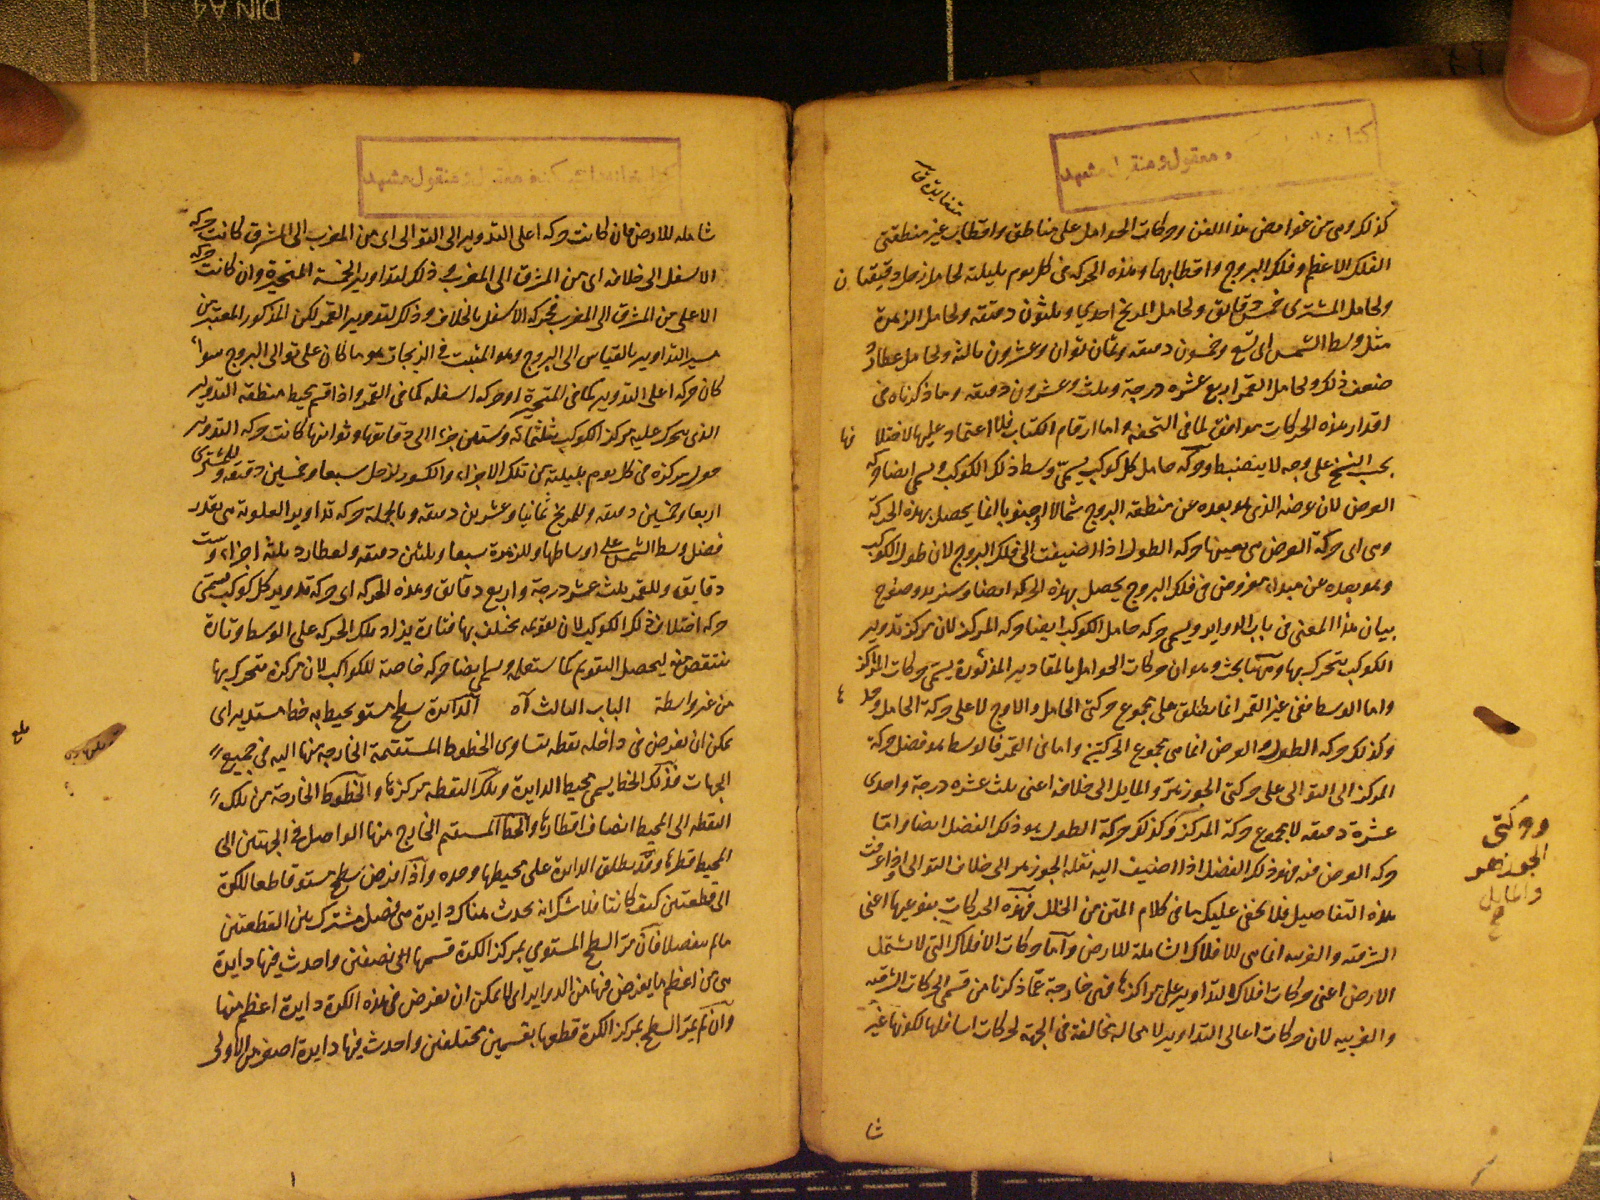 كذلك وهى من غوامض هذا الفن وحركات الحوامل على مناطق واقطاب غير منطقتى
متغايرة
الفلك الاعظم وفلك البروج واقطابهما وهذه الحركة فى كل يوم بليلته لحامل زحل دقيقتان
ولحامل المشترى خمس دقايق ولحامل المريخ احدى وثلثون دقيقه ولحامل الزهرة
مثل وسط الشمس اى تسع وخمسون دقيقه وثمان ثوان وعشرون ثالثة ولحامل عطارد
ضعف ذلك ولحامل القمر اربع عشره درجة وثلث وعشرون دقيقه وما ذكرناه فى
اقدار هذه الحركات موافق لما فى التحفه واما ارقام الكتاب فلا اعتماد عليها لاختلا فها
بحسب النسخ على وجه لا ينضبط وحركة حامل كل كوكب يسمى وسط ذلك الكوكب ويسمى ايضا حركة
العرض لان عرضه الذى هو بعده عن منطقه البروج شمالا او جنوبا انما يحصل بهذه الحركة
وهى اى حركة العرض هى بعينها حركه الطول اذا اضيفت الى فلك البروج لان طول الكوكب
وهو بعده عن مبداء مفروض فى فلك البروج يحصل بهذه الحركه ايضا وسنزيد وضوح
بيان هذا المعنى فى باب الدواير ويسمى حركه حامل الكوكب ايضا حركه المركز لان مركز تدوير
الكوكب يتحرك بها وههنا بحث وهو ان حركات الحوامل بالمقادير المذكورة يسمى حركات المراكز
واما الوسط ففى غير القمر انما يطلق على مجموع حركتى الحامل والاوج لا على حركة الحامل وحد ه
وكذلك حركه الطول والعرض انما هى مجموع الحركتين واما فى القمر فالوسط هو فضل حركة
المركز الى التوالى على حركتى الجوزهر والمايل الى خلافه اعنى ثلث عشره درجة واحدى
عشرة دقيقه لا مجموع حركة المركز وكذلك حركة الطول هو ذلك الفضل ايضا واما
حركه العرض فيه فهو ذلك الفضل اذا اضيف اليه نقله الجوزهر الى خلاف التوالى واذا عرفت
هذه التفاصيل فلا يخفى عليك ما فى كلام المتن من الخلل فهذه الحركات بنوعيها اعنى
الشرقيه والغربيه انما هى للافلاك الشاملة للارض واما حركات الافلاك التى لا تشتمل
الارض اعنى حركات افلاك التداوير على مراكزها فهى خارجة عما ذكرنا من قسمى الحركات الشرقيه
والغربيه لان حركات اعالى التداوير لا محاله مخالفة فى الجهة لحركات اسافلها لكونها غير
وحركتى
الجوزهر
والمايل
شا
شامله للارض فان كانت حركه اعلى التدوير الى التوالى اى من المغرب الى المشرق كانت حركه
الاسفل الى خلافه اى من المشرق الى المغرب وذلك لتداوير الخمسة المتحيرة وان كانت حركه
الاعلى من المشرق الى المغرب فحركه الاسفل بالخلاف وذلك لتدوير القمر لكن المذكور المعتبر من
مسير التداوير بالقياس الى البروج وهو المثبت فى الزيجات هو ما كان على توالى البروج سواء
كان حركه اعلى التدوير كما فى المتحيرة او حركه اسفله كما فى القمر واذا قسم محيط منطقه التدوير
الذى يتحرك عليه مركز الكوكب بثلثمائة وستين جزءا الى دقايقها وثوانيها كانت حركه التدوير
حول مركزه فى كل يوم بليلته من تلك الاجزاء والكسور لزحل سبعا وخمسين دقيقه وللمشترى
اربعا وخمسين دقيقه وللمريخ ثمانيا وعشرين دقيقه وبالجملة حركه تداوير العلوية هى بقدر
فضل وسط الشمس على اوساطها وللزهرة سبعا وثلثين دقيقه ولعطارد ثلثة اجزاء وست
دقايق وللقمر ثلث عشر درجة واربع دقايق وهذه الحركه اى حركه تدوير كل كوكب يسمى
حركه اختلاف ذلك الكوكب لان تقويمه يختلف بها فتارة يزاد تلك الحركه على الوسط وتارة
ينتقص منه ليحصل التقويم كما ستعلمه ويسمى ايضا حركه خاصة للكواكب لان مركزه متحرك بها
من غير واسطة الباب الثالث آه الدائرة سطح مستو يحيط به خط مستدير اى
يمكن ان يفرض فى داخله نقطه تتساوى الخطوط المستقيمة الخارجة منها اليه فى جميع
الجهات فذلك الخط يسمى محيط الدايرة وتلك النقطه مركزها والخطوط الخارجة من تلك
النقطه الى المحيط انصاف اقطارها والخط المستقيم الخارج منها الواصل فى الجهتين الى
المحيط قطرها وقد يطلق الدايرة على محيطها وحده واذا فرض سطح مستو قاطعا للكرة
الى قطعتين كيف كانتا فلا شك انه يحدث هناك دايرة هى فصل مشترك بين القطعتين
مالم ينفصلا فان مر السطح المستوى بمركز الكرة قسمها الى نصفين واحدث فيها دايرة
هى من اعظم ما يفرض فيها من الدواير اى لا يمكن ان يفرض فى هذه الكرة دايرة اعظم منها
وان لم يمر السطح بمركز الكرة قطعها بقسمين مختلفين واحدث فيها دايرة اصغر من الاولى